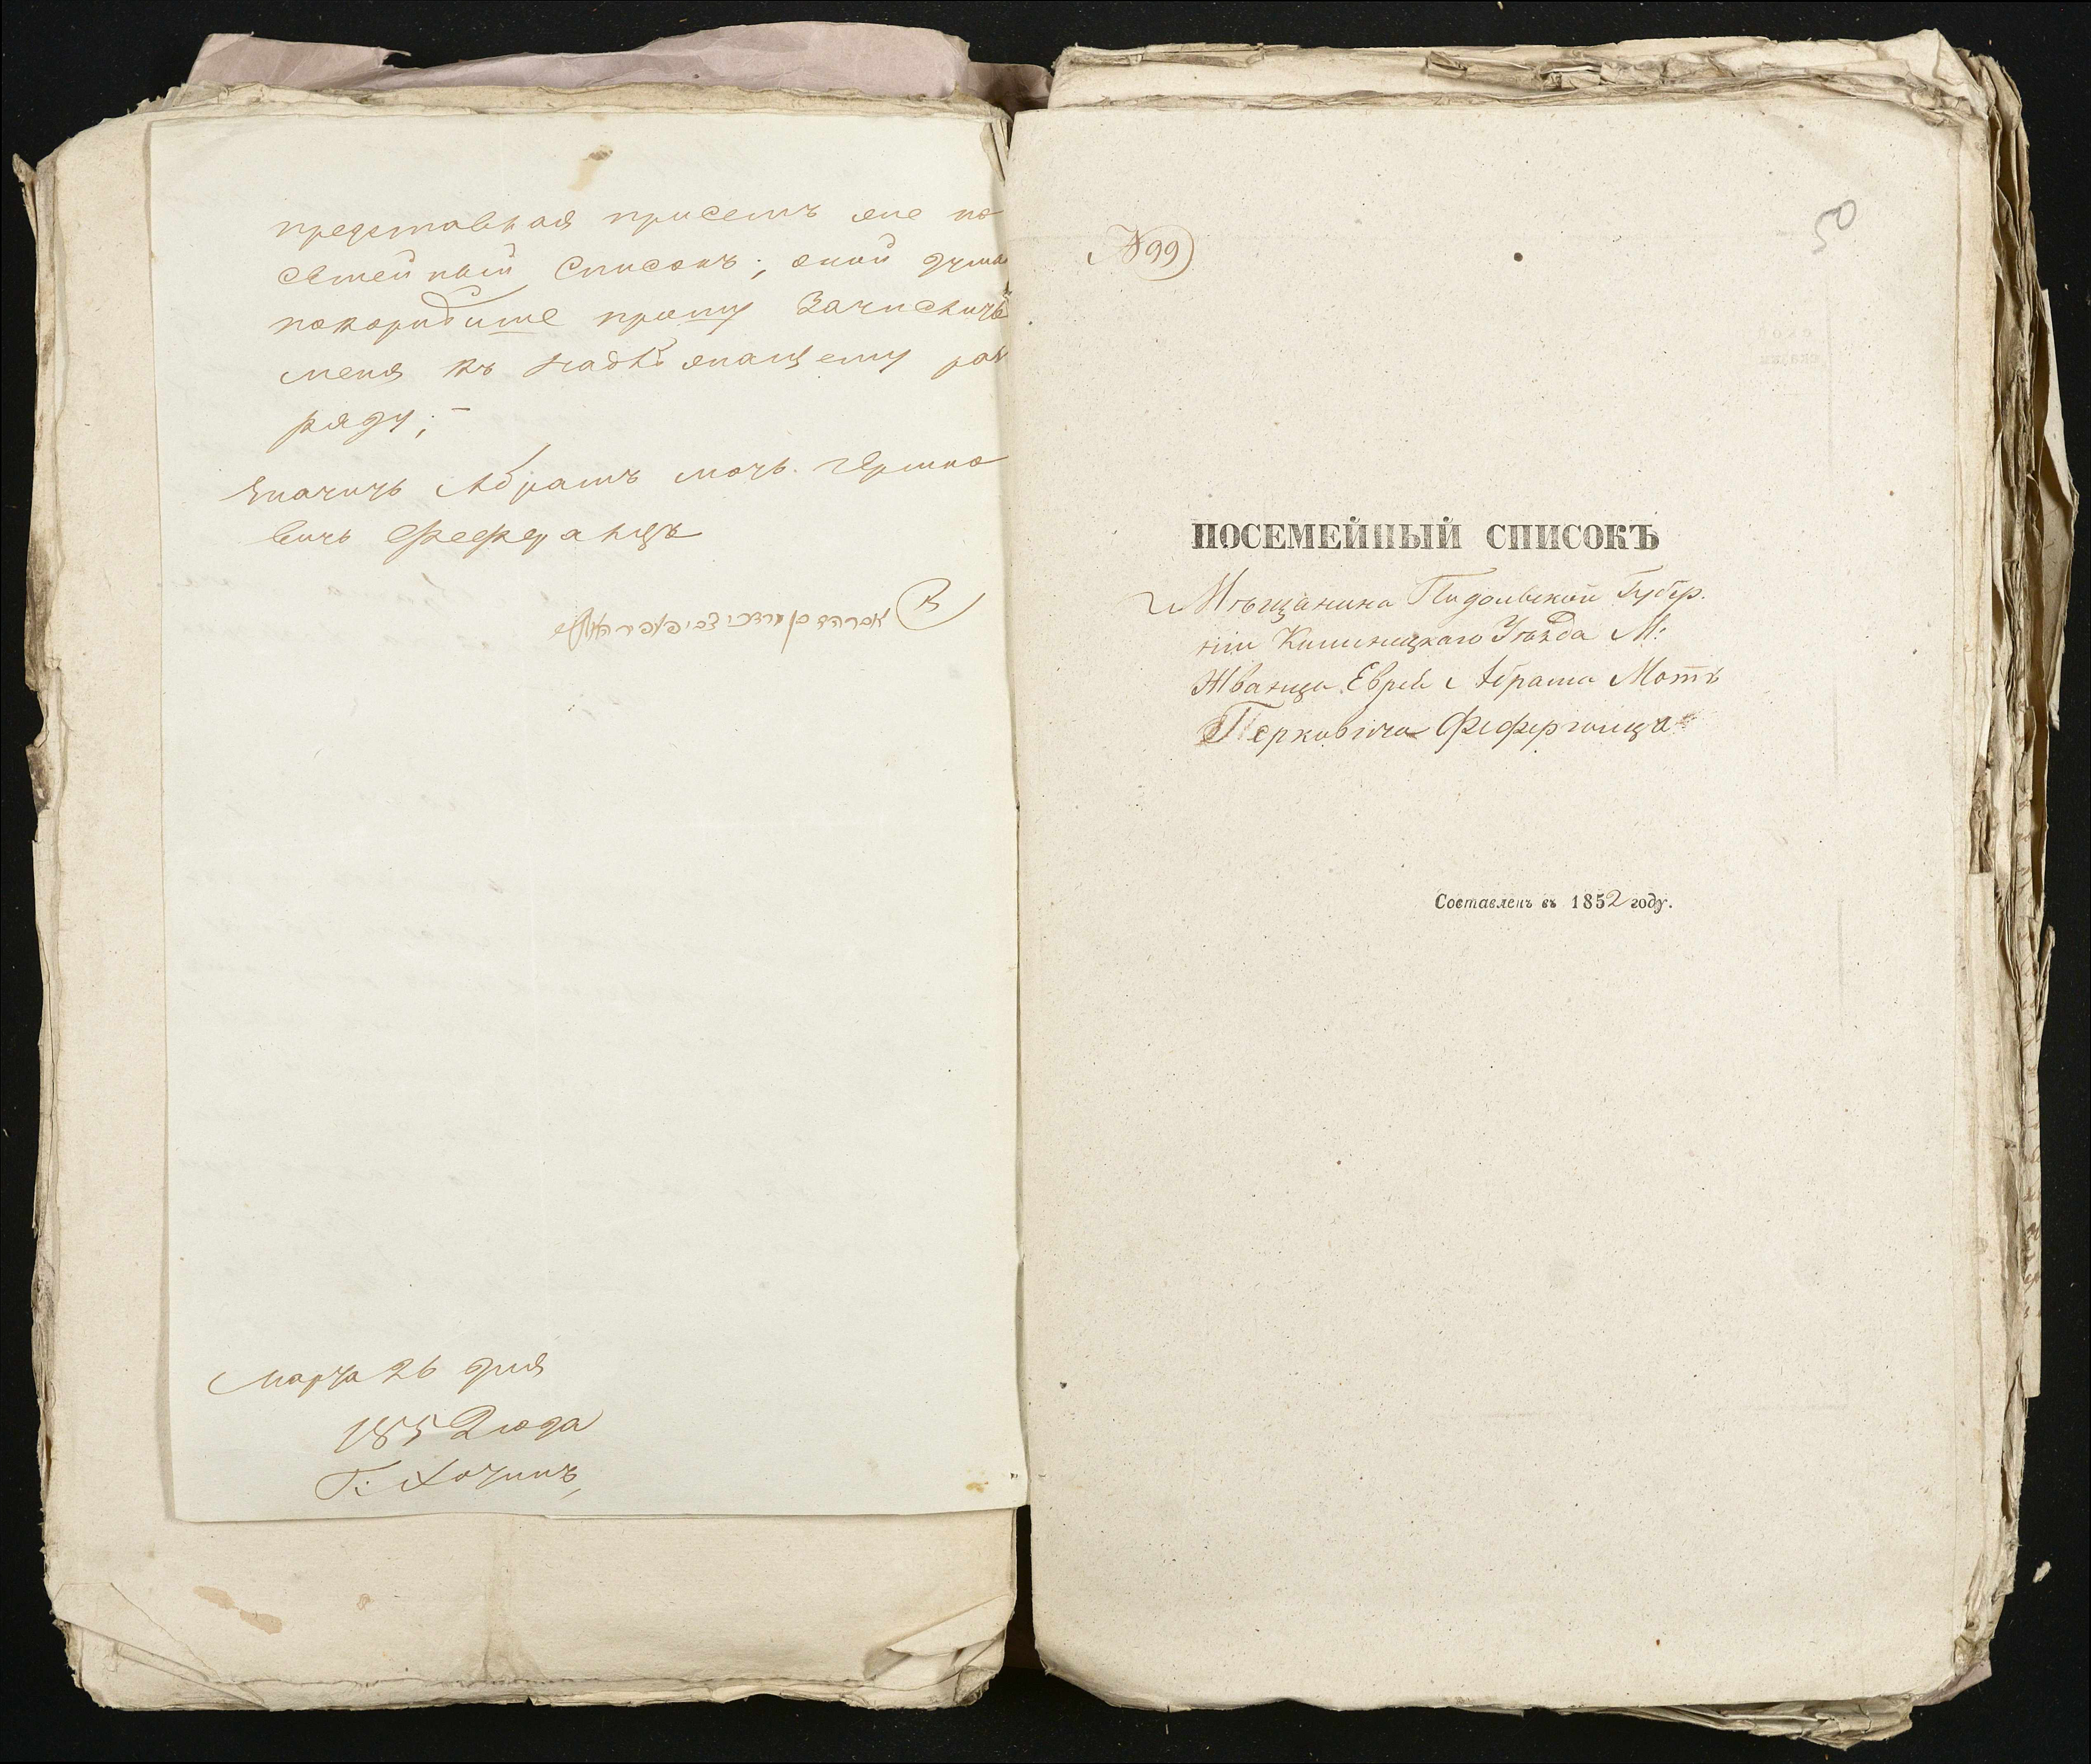 представляя присемъ мне по
семейный списокъ; оной думы
покорнейше прошу зачислить
меня къ надлежащему раз
ряду;
Абрамъ моть Гершко
вичъ Феферанцъ
Марта 26 дня
1852 года
Г: Хотинъ,
№ 99
50
ПОСЕМЕЙНЫЙ СПИСОКЪ
Мѣщанина Подольской Губер.
ніи Уѣзда М:
Жванца Еврея Абрама Мотя
Герковича
Составленъ въ 1852 году.